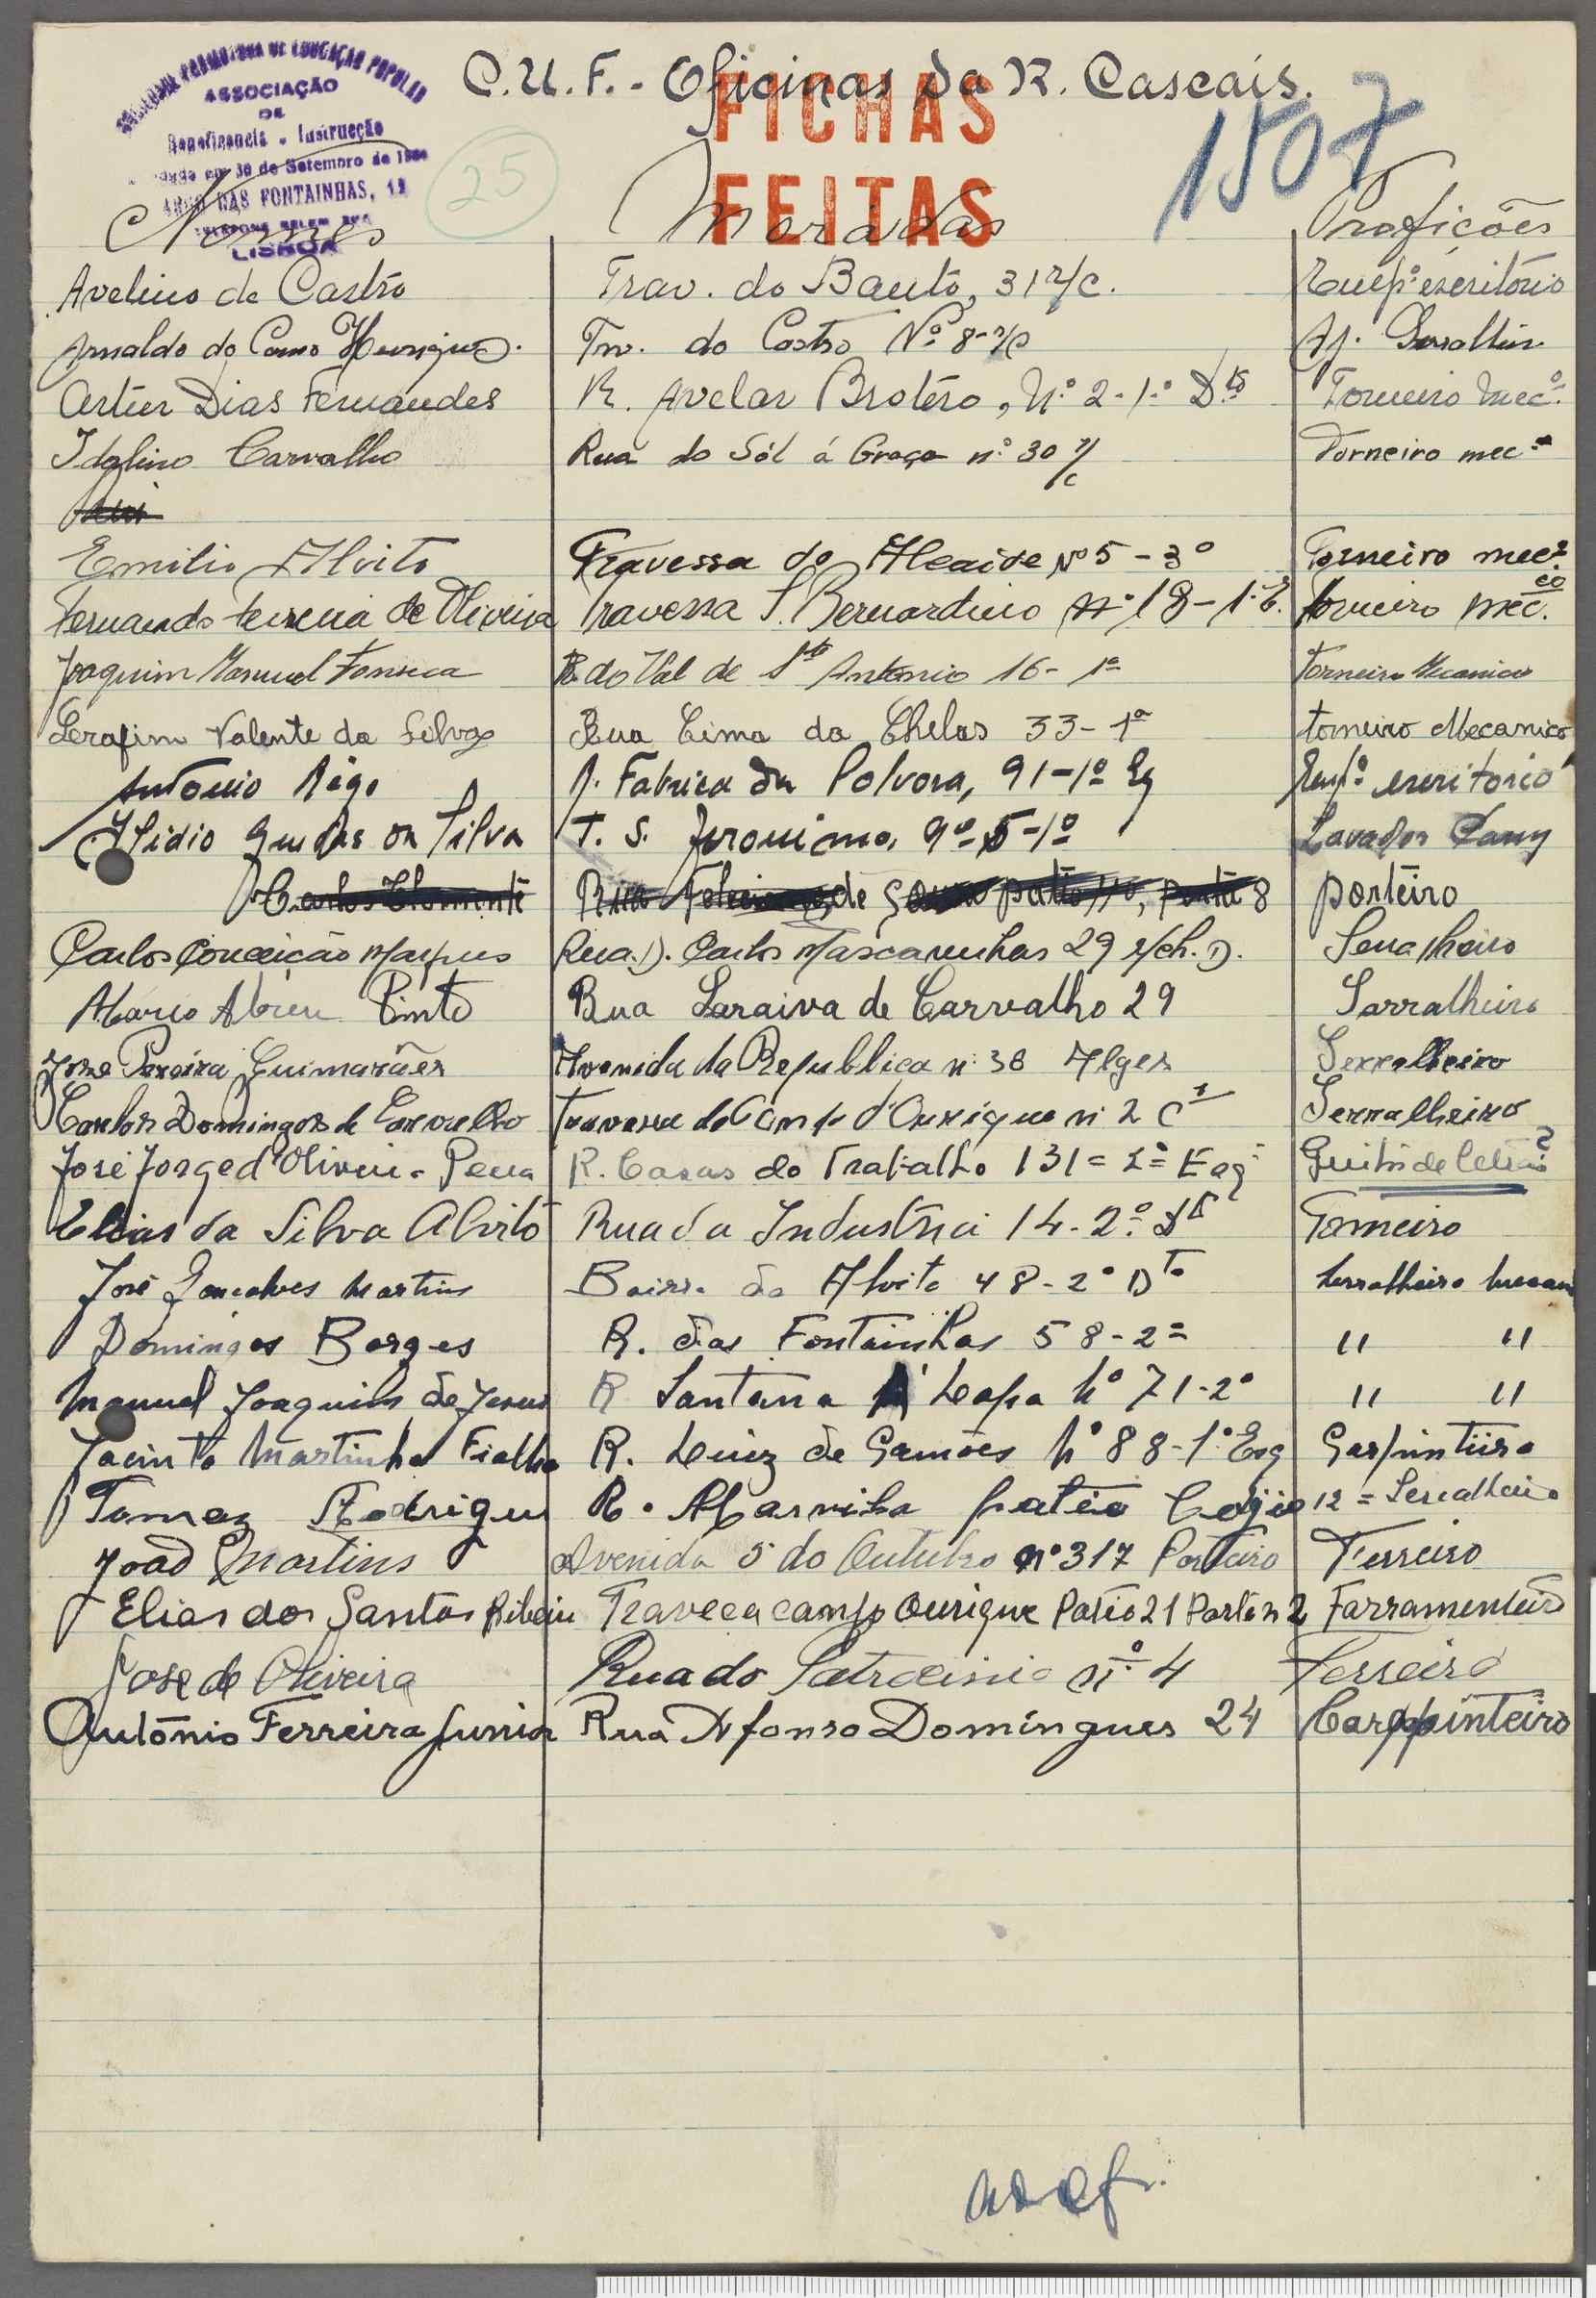 C.U.F. - Oficinas da R. Cascais.
PROMOTORA DE EDUCAÇÃO POPULAR
ASSOCIAÇÃO
DE
Beneficencia e Instrucção
em 30 de Setembro de
DAS FONTAINHAS, 12
LISBOA
25
FICHAS
FEITAS
1507
Nomes Moradas Profições
Avelino de Castro Trav. do Bauto, 31 r/c. Empº escritório
Arnaldo do Carmo Henriques. Trv. do Castro Nº 8-r/c Aj.
Artur Dias Fernandes R. Avelar Brotéro, Nº 2-1º Dto Torneiro Mecº
Idalino Carvalho Rua do Sól á Graça nº 30 r/c Torneiro mecº
Emilio Alvito Travessa do Alcaide Nº 5-3º Torneiro mecº
Fernando Teixeira de Oliveira Travessa S. Bernardino nº 18-1º E. Torneiro mecco
Joaquim Manuel Fonseca R. do Val de Sto Antonio 16-1º Torneiro Mecanico
Serafim Valente da Silva Rua Cima da Chelas 33-1º torneiro Mecanico
António Rêgo R. Fabrica da Polvora, 91-1º Eq Empº escritorio
Ilidio da Silva T. S. Jeronimo, 9º 5-1º Lavador
Carlos Clemente Rua de 8 portéiro
Carlos Conceição Marques Rua D. Carlos Mascarenhas 29 r/ch. D. Serralheiro
Mario Abreu Pinto Rua Saraiva de Carvalho 29 Sarralheiro
Jose Pereira Guimarães Avenida da Republica nº 38 Alges Serralheiro
Carlos Domingos de Carvalho Travessa do Campo d'Ourique nº 2 C 1 Serralheiro
José Jorge d'Oliveira Pena R. Casas do Trabalho 131=2º Esqº
Elias da Silva Alvito Rua da Industria 14-2º Dto Torneiro
José Gonçalves Martins Bairro do Alvito 48-2º Dto Serralheiro mecan
Domingos Borges R. das Fontainhas 58-2º " "
Manuel Joaquim de Jesus R Santana Á Lapa Nº 71-2º " "
Jacinto Martinho Fialho R. Luiz de Camões Nº 88-1º Esq Carpintiiro
Tomaz Rodrigues R. pateo 12 = Serralheiro
João Martins Avenida 5 do Outubro nº 317 Porteiro Ferreiro
Elias dos Santos Ribeiro Traveca campo Ourique Patio 21 Porta n 2 Farramenteiro
Jose de Oliveira Rua do Patrocinio nº 4 Ferreiro
António Ferreira Junior Rua Afonso Domíngues 24 Carppinteiro